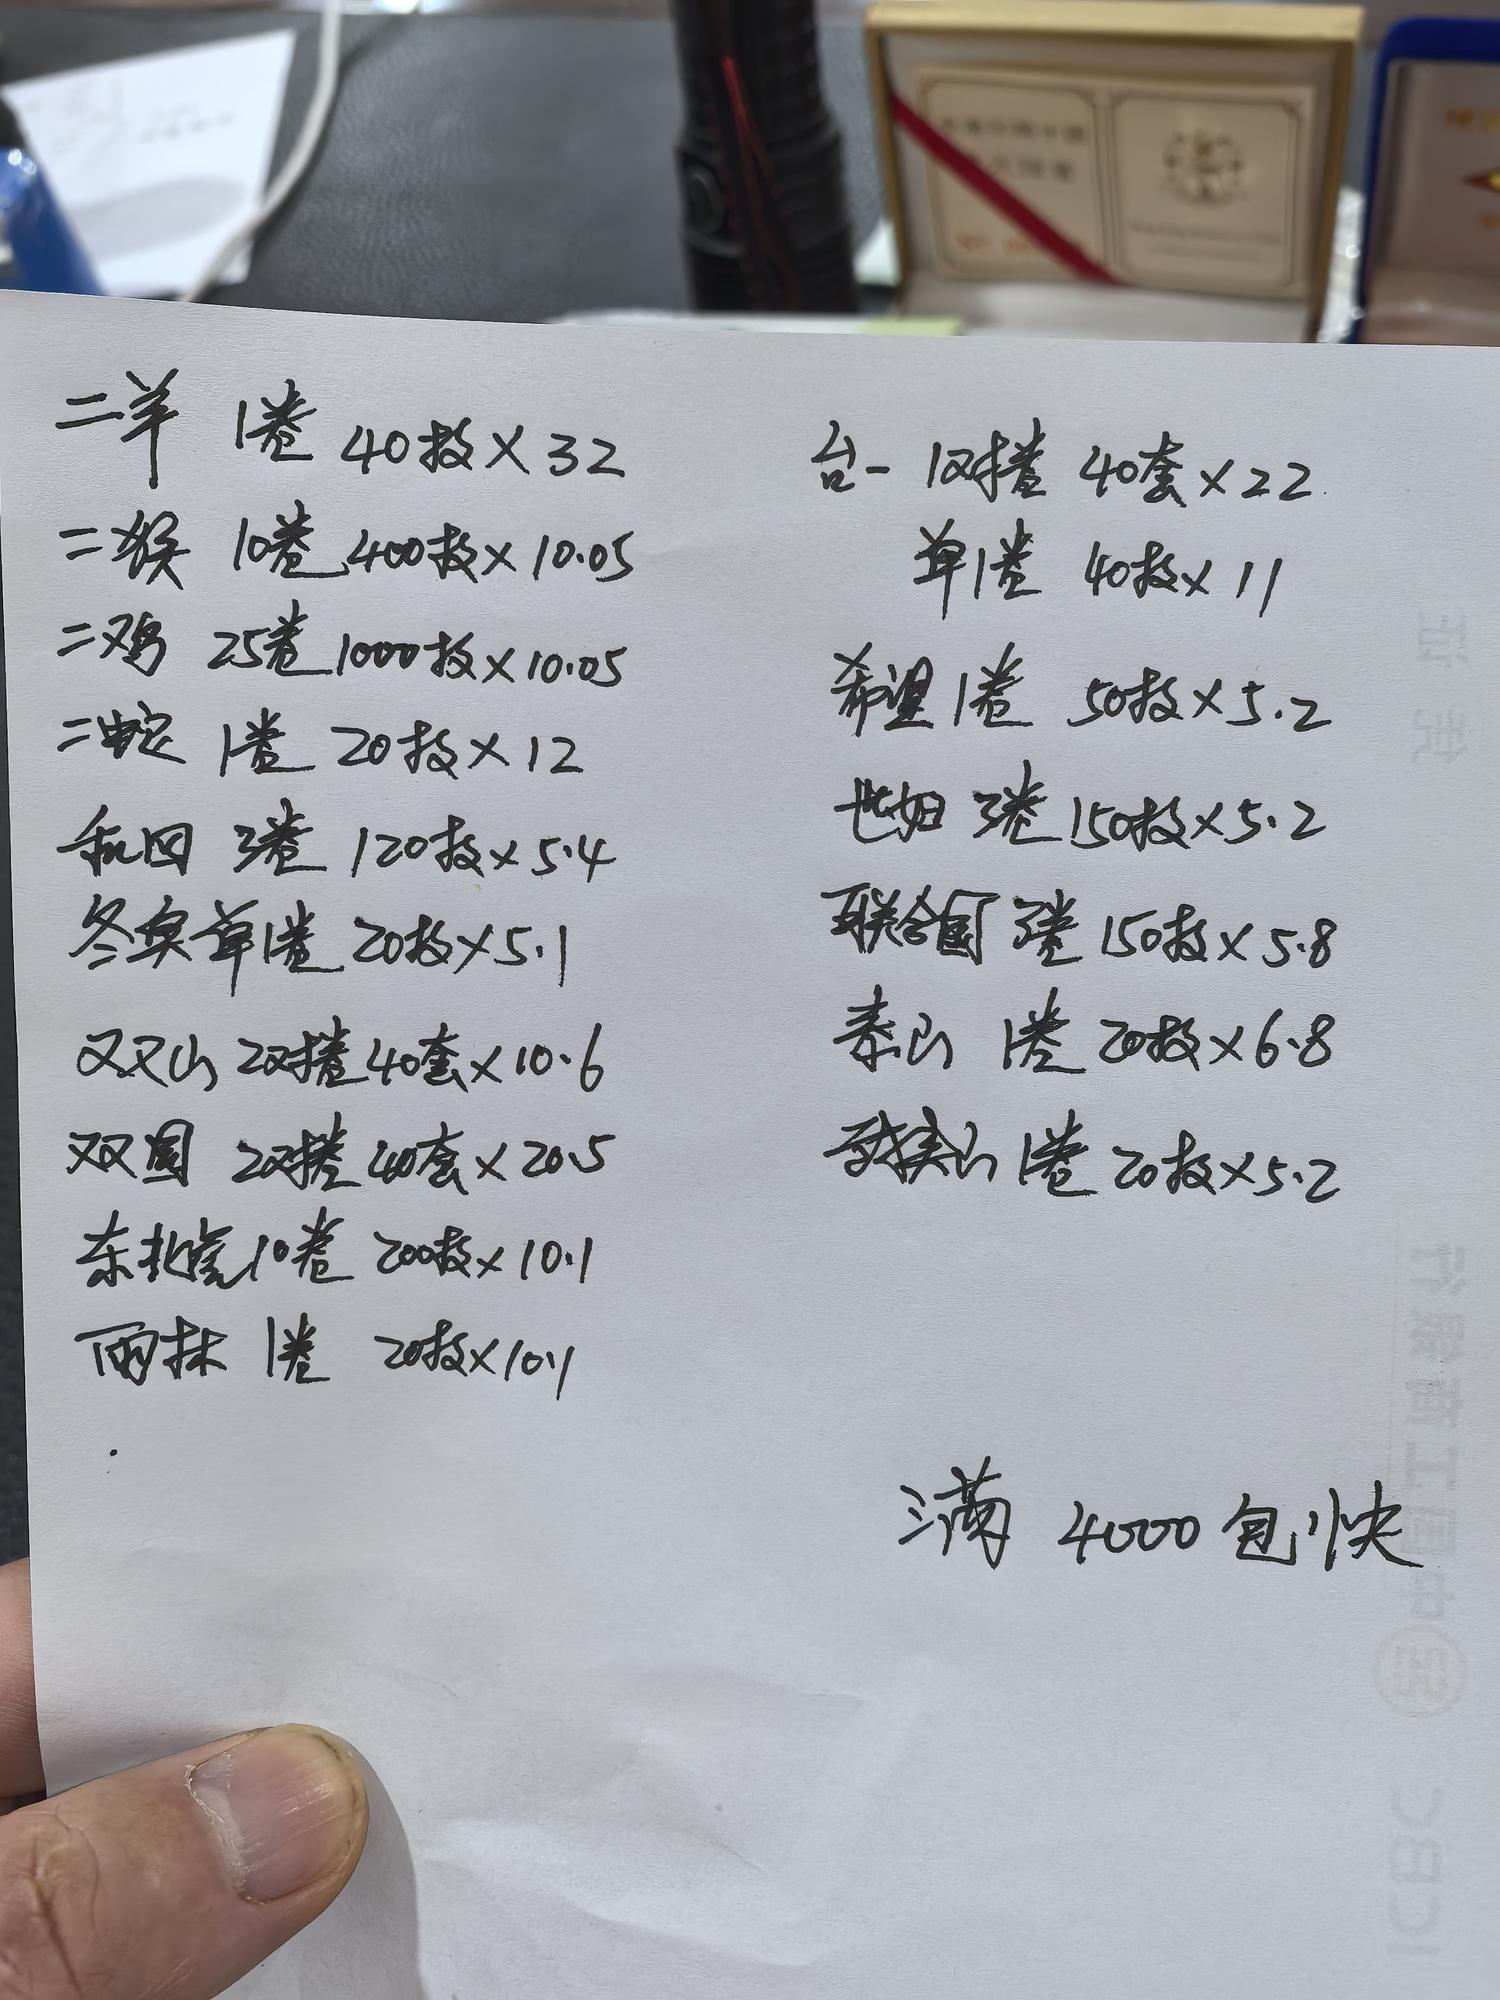 二羊 1卷 40枚×32
二猴 10卷 400枚×10.05
二鸡 25卷 1000枚×10.05
二蛇 1卷 20枚×12
和四 3卷 120枚×5.4
冬奥单1卷 20枚×5.1
双山 2对捲 40套×10.6
双圆 2对捲 40套×20.5
东北虎10卷 200枚×10.1
雨林 1卷 20枚×10.1
台一 1对捲 40套×22
单1卷 40枚×11
希望1卷 50枚×5.2
世妇 3卷 150枚×5.2
联合国 3卷 150枚×5.8
泰山 1卷 20枚×6.8
山 1卷 20枚×5.2
满 4000 包快
ICBC